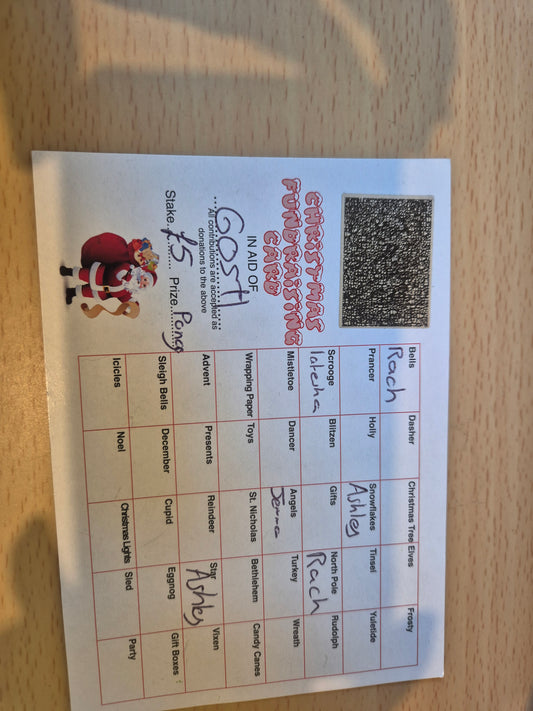 CHRISTMAS
FUNDRAISING
CARD
IN AID OF
GOSH
All contributions are accepted as
donations to the above
Stake £5 Prize
Bells Dasher Christmas Tree Elves Frosty
Rach
Prancer Holly Snowflakes Tinsel Yuletide
Ashley
Scrooge Blitzen Gifts North Pole Rudolph
Rach
Mistletoe Dancer Angels Turkey Wreath
Jemma
Wrapping Paper Toys St. Nicholas Bethlehem Candy Canes
Advent Presents Reindeer Star Vixen
Ashley
Sleigh Bells December Cupid Eggnog Gift Boxes
Icicles Noel Christmas Lights Sled Party